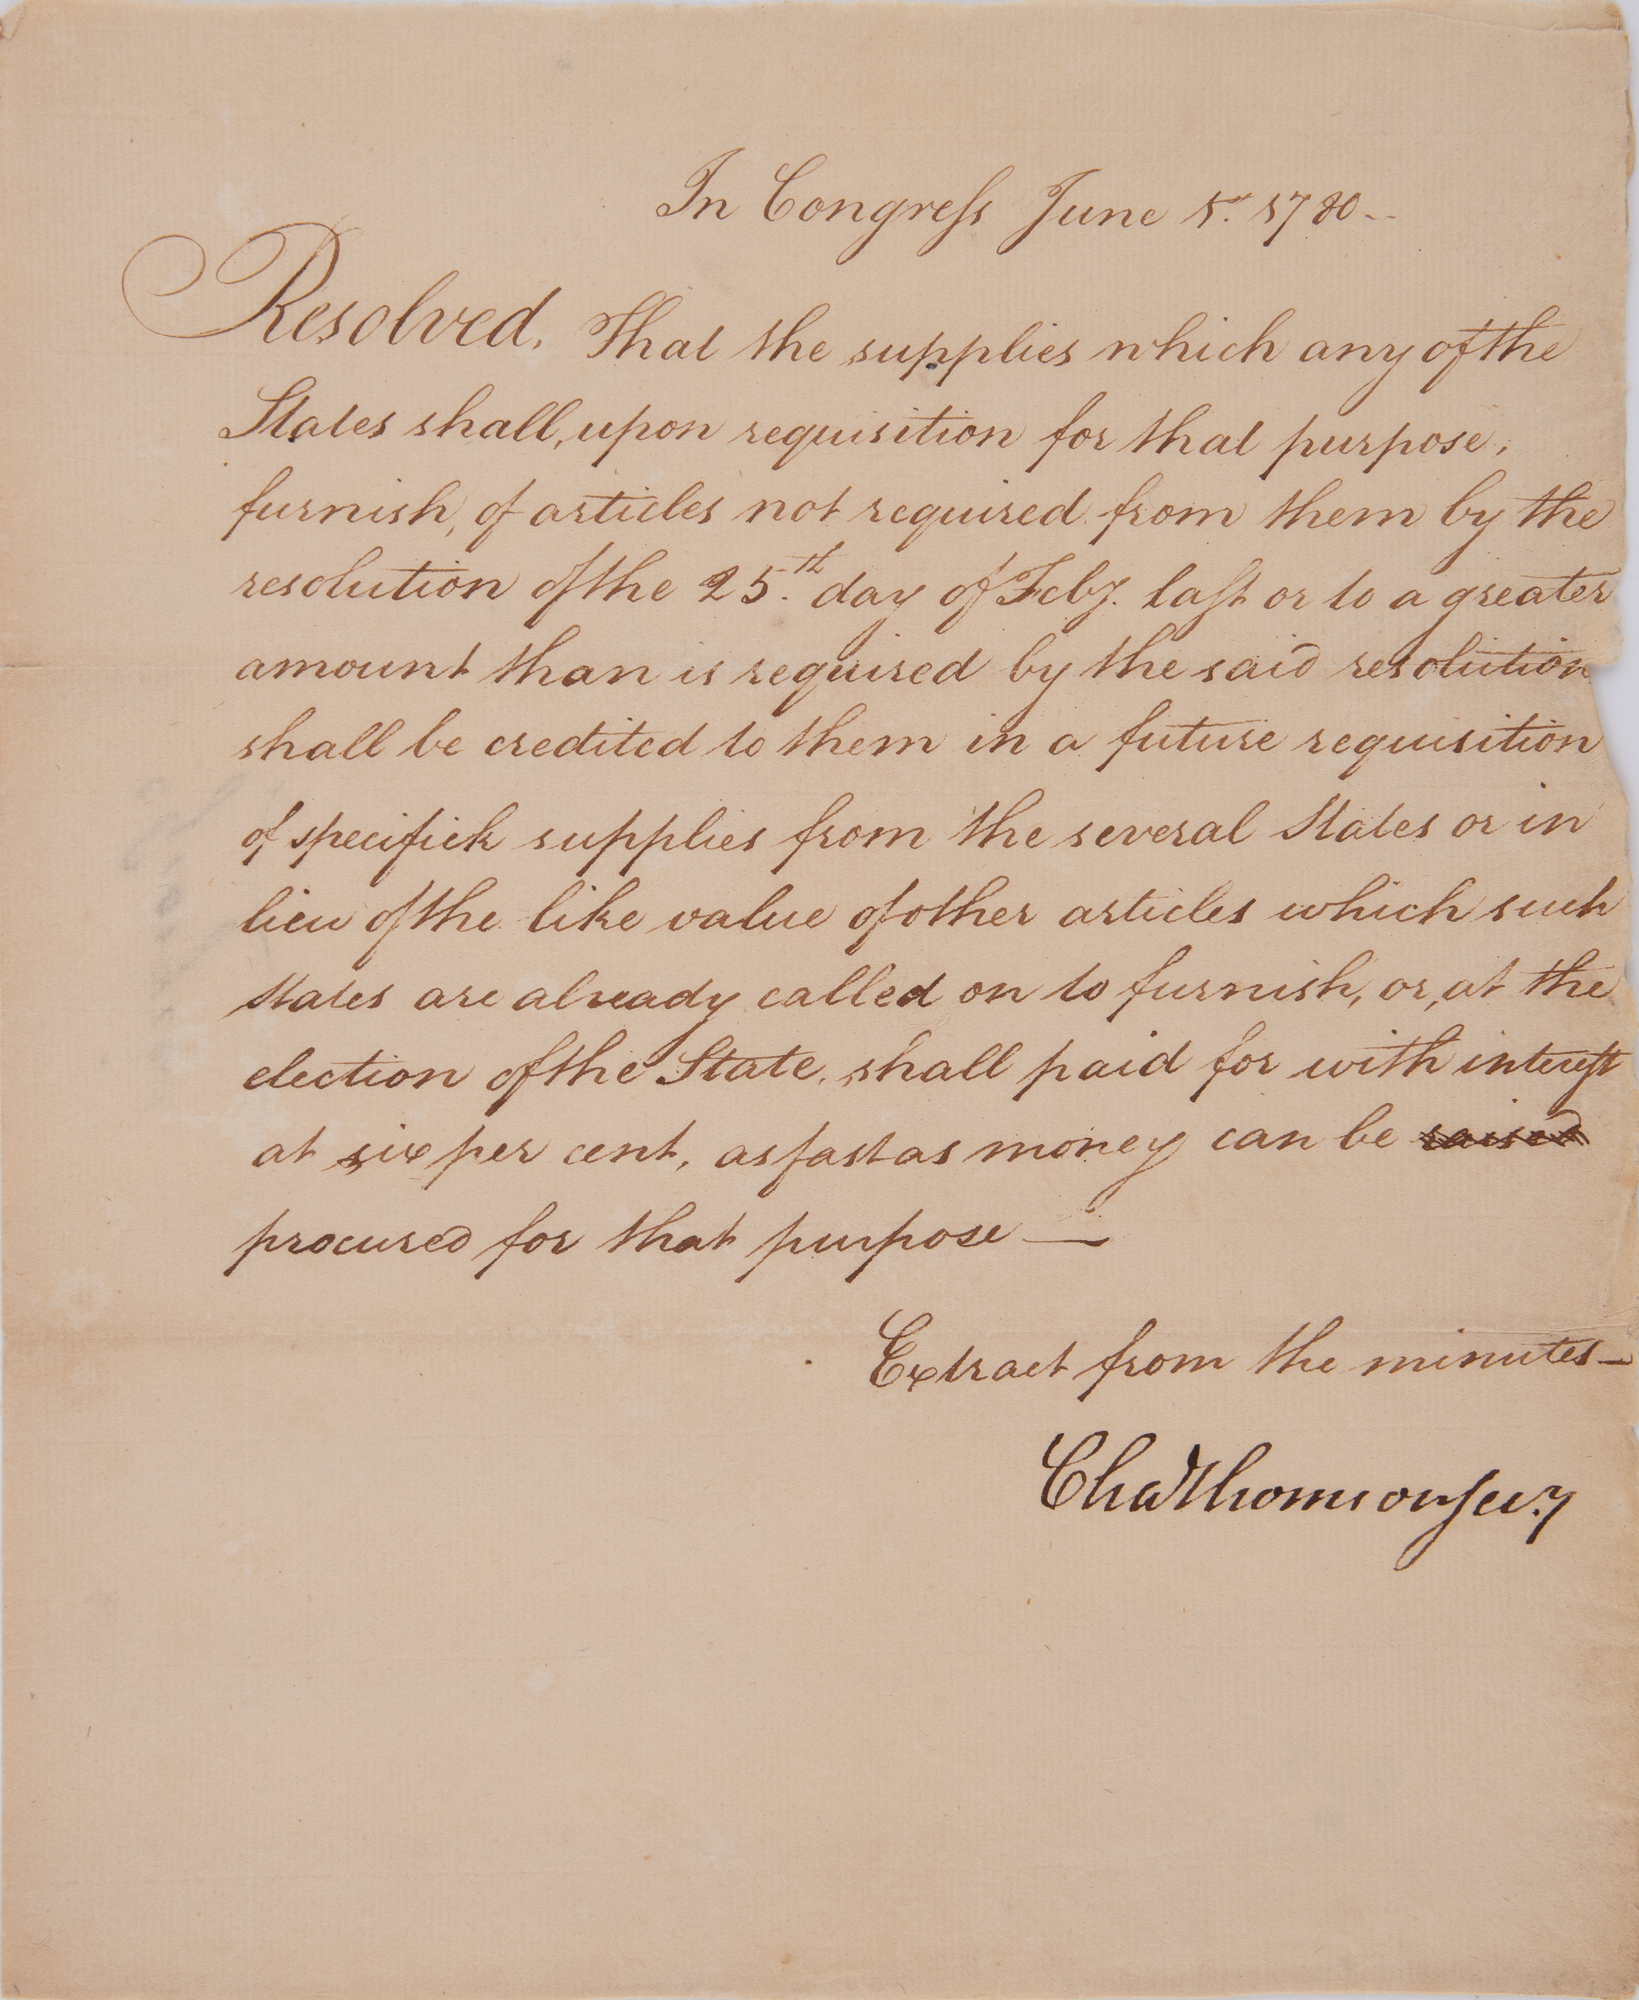 In Congress June 5th. 1780--
Resolved, That the supplies which any of the
States shall, upon requisition for that purpose,
furnish, of articles not required from them by the
resolution of the 25th. day of Feby. last or to a greater
amount than is required by the said resolution
shall be credited to them in a future requisition
of specifick supplies from the several States or in
lieu of the like value of other articles which such
States are already called on to furnish, or, at the
election of the State, shall paid for with interest
at six per cent, as fast as money can be raised
procured for that purpose —
Extract from the minutes —
Chas Thomson Secy